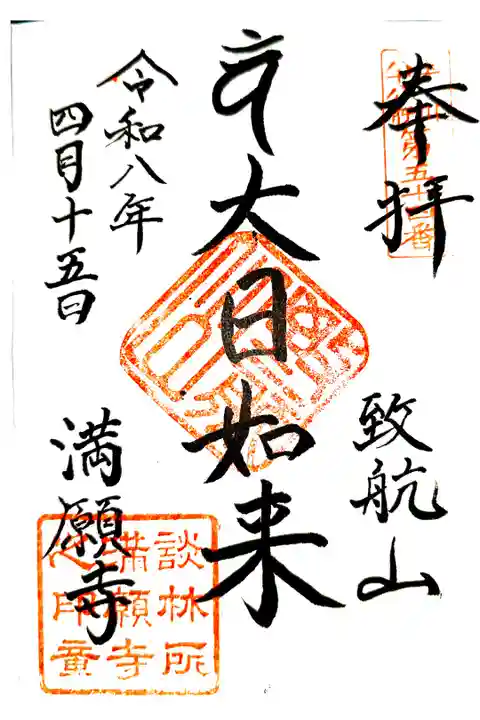 奉拝
致航山
大日如来
令和八年
四月十五日
満願寺
談林所
満願寺
之印章